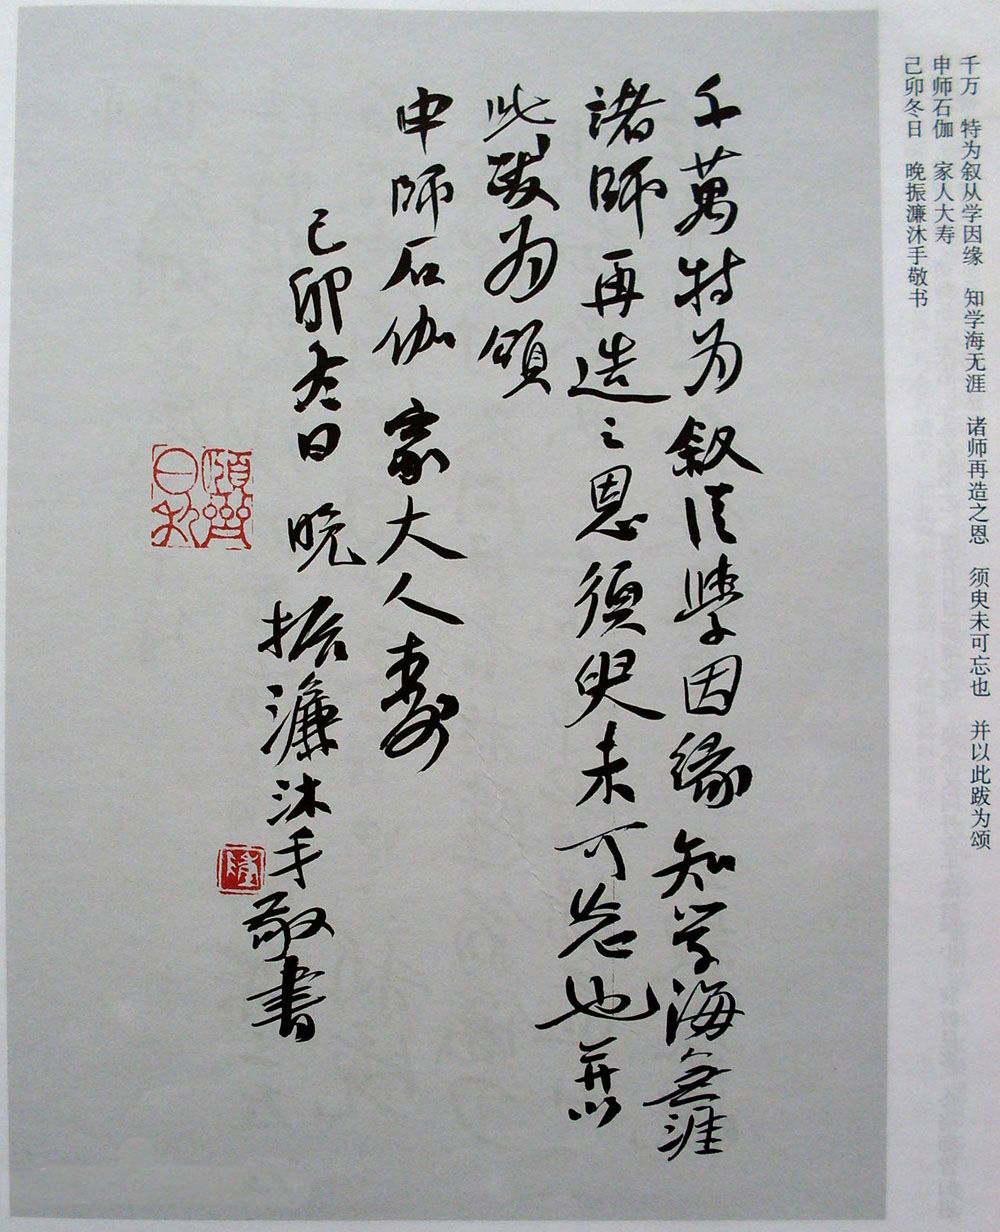 千万 特为叙从学因缘 知学海无涯 诸师再造之恩 须臾未可忘也 并以此跋为颂
申师石伽 家人大寿
己卯冬日 晚振濂沐手敬书
千萬特为叙従學因緣知学海無涯
諸師再造之恩須臾未可忘也并以
此跋为頌
申師石伽 家大人壽
己卯冬日 晚 振濂沐手敬書